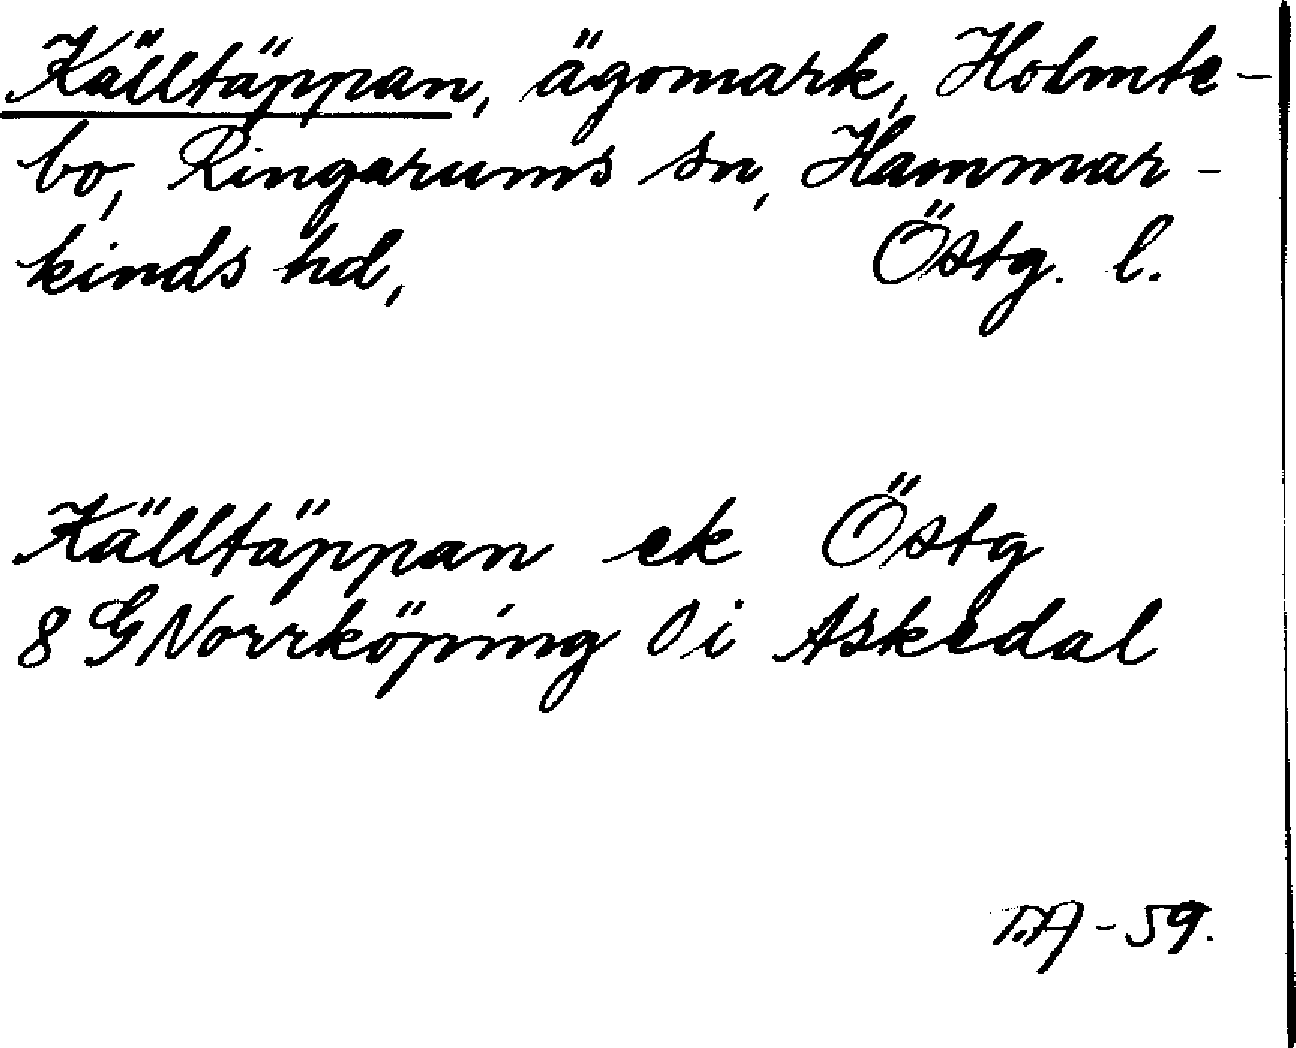 Källtäppan, ägomark, Holmte-
bo, Ringarums sn, Hammar-
kinds hd, Östg. l.
Källtäppan ek Östg
8 G Norrköping i Askedal
-59.